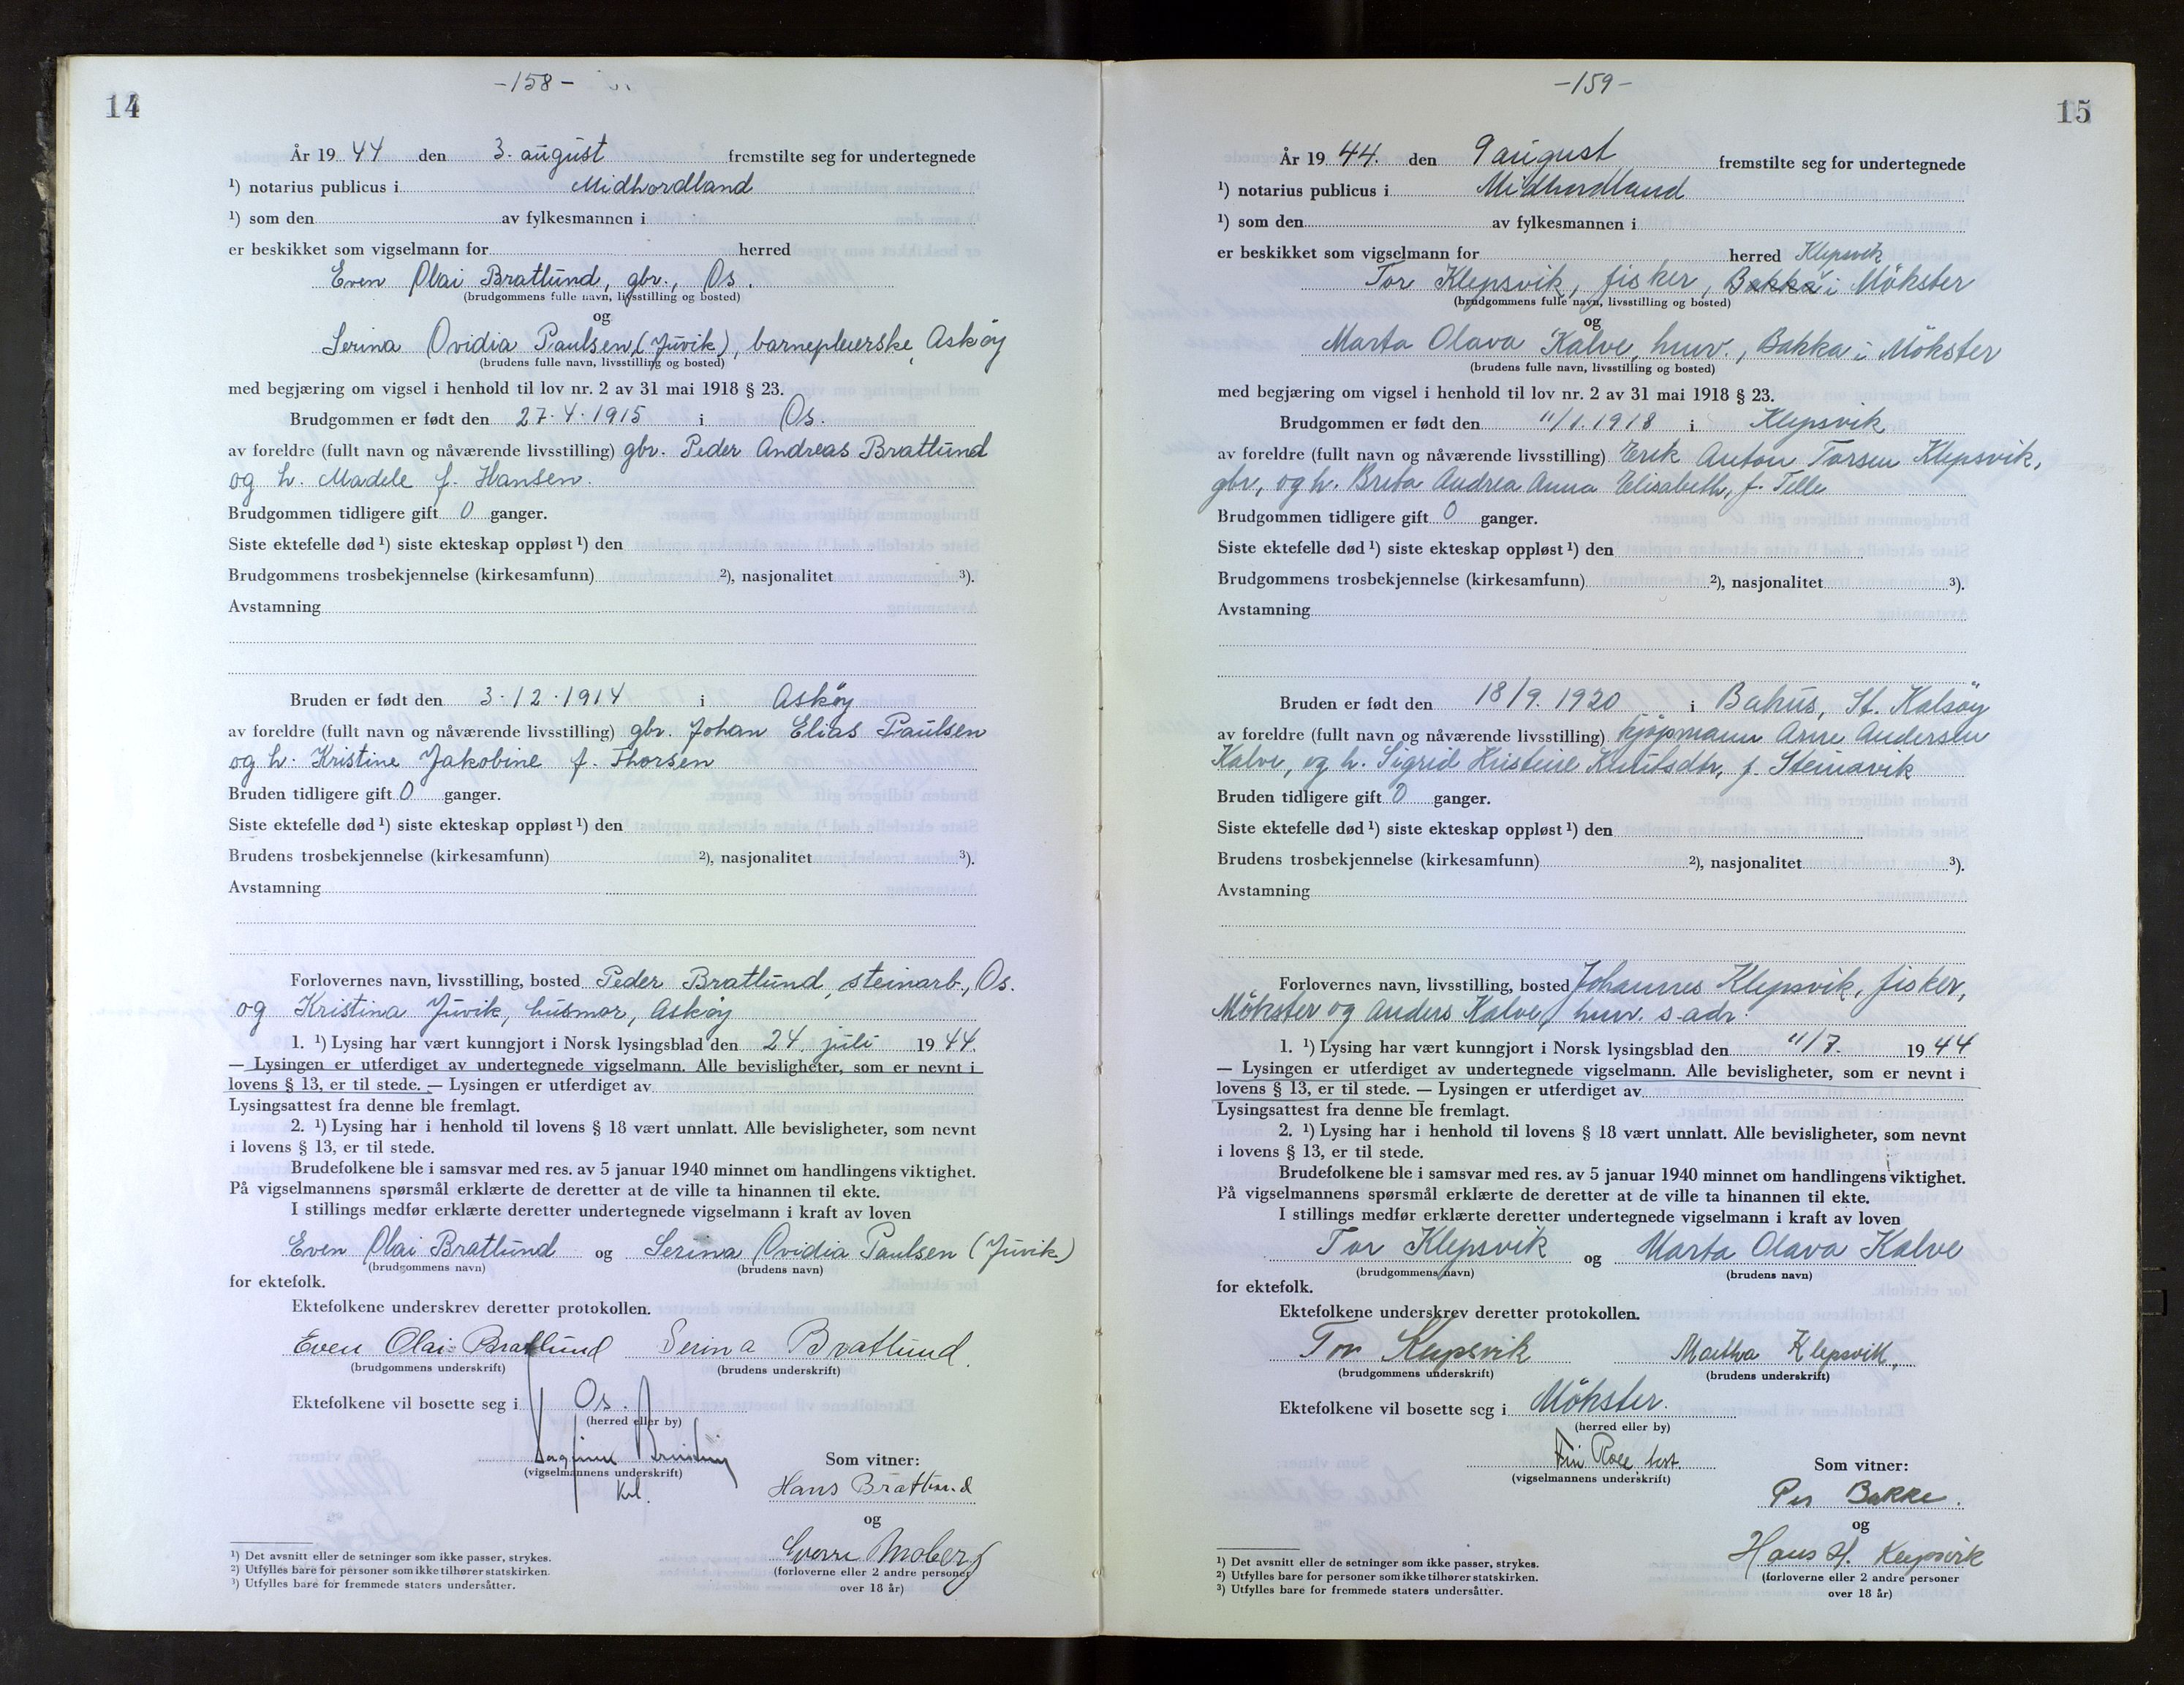 14
-158-
År 19 44 den 3. august fremstilte seg for undertegnede
¹) notarius publicus i Midhordland
¹) som den av fylkesmannen i
er beskikket som vigselmann for herred
Even Olai Bratlund, gbr., Os.
(brudgommens fulle navn, livsstilling og bosted)
og
Serina Ovidia Paulsen, (Juvik), barnepleierske, Askøy
(brudens fulle navn, livsstilling og bosted)
med begjæring om vigsel i henhold til lov nr. 2 av 31 mai 1918 § 23.
Brudgommen er født den 27.4.1915 i Os.
av foreldre (fullt navn og nåværende livsstilling) gbr. Peder Andreas Bratlund
og h. Madele f. Hansen.
Brudgommen tidligere gift 0 ganger.
Siste ektefelle død ¹) siste ekteskap oppløst ¹) den
Brudgommens trosbekjennelse (kirkesamfunn) ²), nasjonalitet ³).
Avstamning
Bruden er født den 3.12.1914 i Askøy
av foreldre (fullt navn og nåværende livsstilling) gbr. Johan Elias Paulsen
og h. Kristine Jakobine f. Thorsen
Bruden tidligere gift 0 ganger.
Siste ektefelle død ¹) siste ekteskap oppløst ¹) den
Brudens trosbekjennelse (kirkesamfunn) ²), nasjonalitet ³).
Avstamning
Forlovernes navn, livsstilling, bosted Peder Bratlund, steinarb., Os.
og Kristina Juvik, husmor, Askøy
1. ¹) Lysing har vært kunngjort i Norsk lysingsblad den 24. juli 19 44.
— Lysingen er utferdiget av undertegnede vigselmann. Alle bevisligheter, som er nevnt i
lovens § 13, er til stede. — Lysingen er utferdiget av
Lysingsattest fra denne ble fremlagt.
2. ¹) Lysing har i henhold til lovens § 18 vært unnlatt. Alle bevisligheter, som nevnt
i lovens § 13, er til stede.
Brudefolkene ble i samsvar med res. av 5 januar 1940 minnet om handlingens viktighet.
På vigselmannens spørsmål erklærte de deretter at de ville ta hinannen til ekte.
I stillings medfør erklærte deretter undertegnede vigselmann i kraft av loven
Even Olai Bratlund og Serina Ovidia Paulsen (Juvik)
(brudgommens navn) (brudens navn)
for ektefolk.
Ektefolkene underskrev deretter protokollen.
Even Olai Bratlund Serina Bratlund.
(brudgommens underskrift) (brudens underskrift)
Ektefolkene vil bosette seg i Os.
(herred eller by)
Som vitner:
(vigselmannens underskrift)
Hans Bratlund
og
Sverre Moberg
(forloverne eller 2 andre personer
over 18 år)
¹) Det avsnitt eller de setninger som ikke passer, strykes.
²) Utfylles bare for personer som ikke tilhører statskirken.
³) Utfylles bare for fremmede staters undersåtter.
15
-159-
År 19 44. den 9 august fremstilte seg for undertegnede
¹) notarius publicus i Midhordland
¹) som den av fylkesmannen i
er beskikket som vigselmann for herred Klepsvik
Tor Klepsvik, fisker, Bakka i Møkster
(brudgommens fulle navn, livsstilling og bosted)
og
Marta Olava Kalve, husv., Bakka i Møkster
(brudens fulle navn, livsstilling og bosted)
med begjæring om vigsel i henhold til lov nr. 2 av 31 mai 1918 § 23.
Brudgommen er født den 11/1.1918 i Klepsvik
av foreldre (fullt navn og nåværende livsstilling) Erik Anton Torsen Klepsvik,
gbr, og h. Brita Andrea Anna Elisabeth, f. Telle
Brudgommen tidligere gift 0 ganger.
Siste ektefelle død ¹) siste ekteskap oppløst ¹) den
Brudgommens trosbekjennelse (kirkesamfunn) ²), nasjonalitet ³).
Avstamning
Bruden er født den 18/9.1920 i Bakus, St. Kalsøy
av foreldre (fullt navn og nåværende livsstilling) kjøpmann Arne Andersen
Kalve, og h. Sigrid Kristine Knutsdtr, f. Steinarvik
Bruden tidligere gift 0 ganger.
Siste ektefelle død ¹) siste ekteskap oppløst ¹) den
Brudens trosbekjennelse (kirkesamfunn) ²), nasjonalitet ³).
Avstamning
Forlovernes navn, livsstilling, bosted Johannes Klepsvik, fisker,
Møkster og Anders Kalve, husv. s. adr.
1. ¹) Lysing har vært kunngjort i Norsk lysingsblad den 11/7. 19 44
— Lysingen er utferdiget av undertegnede vigselmann. Alle bevisligheter, som er nevnt i
lovens § 13, er til stede. — Lysingen er utferdiget av
Lysingsattest fra denne ble fremlagt.
2. ¹) Lysing har i henhold til lovens § 18 vært unnlatt. Alle bevisligheter, som nevnt
i lovens § 13, er til stede.
Brudefolkene ble i samsvar med res. av 5 januar 1940 minnet om handlingens viktighet.
På vigselmannens spørsmål erklærte de deretter at de ville ta hinannen til ekte.
I stillings medfør erklærte deretter undertegnede vigselmann i kraft av loven
Tor Klepsvik og Marta Olava Kalve
(brudgommens navn) (brudens navn)
for ektefolk.
Ektefolkene underskrev deretter protokollen.
Tor Klepsvik Martha Klepsvik,
(brudgommens underskrift) (brudens underskrift)
Ektefolkene vil bosette seg i Møkster.
(herred eller by)
Som vitner:
(vigselmannens underskrift)
Per Bakke.
og
Hans H. Klepsvik
(forloverne eller 2 andre personer
over 18 år)
¹) Det avsnitt eller de setninger som ikke passer, strykes.
²) Utfylles bare for personer som ikke tilhører statskirken.
³) Utfylles bare for fremmede staters undersåtter.